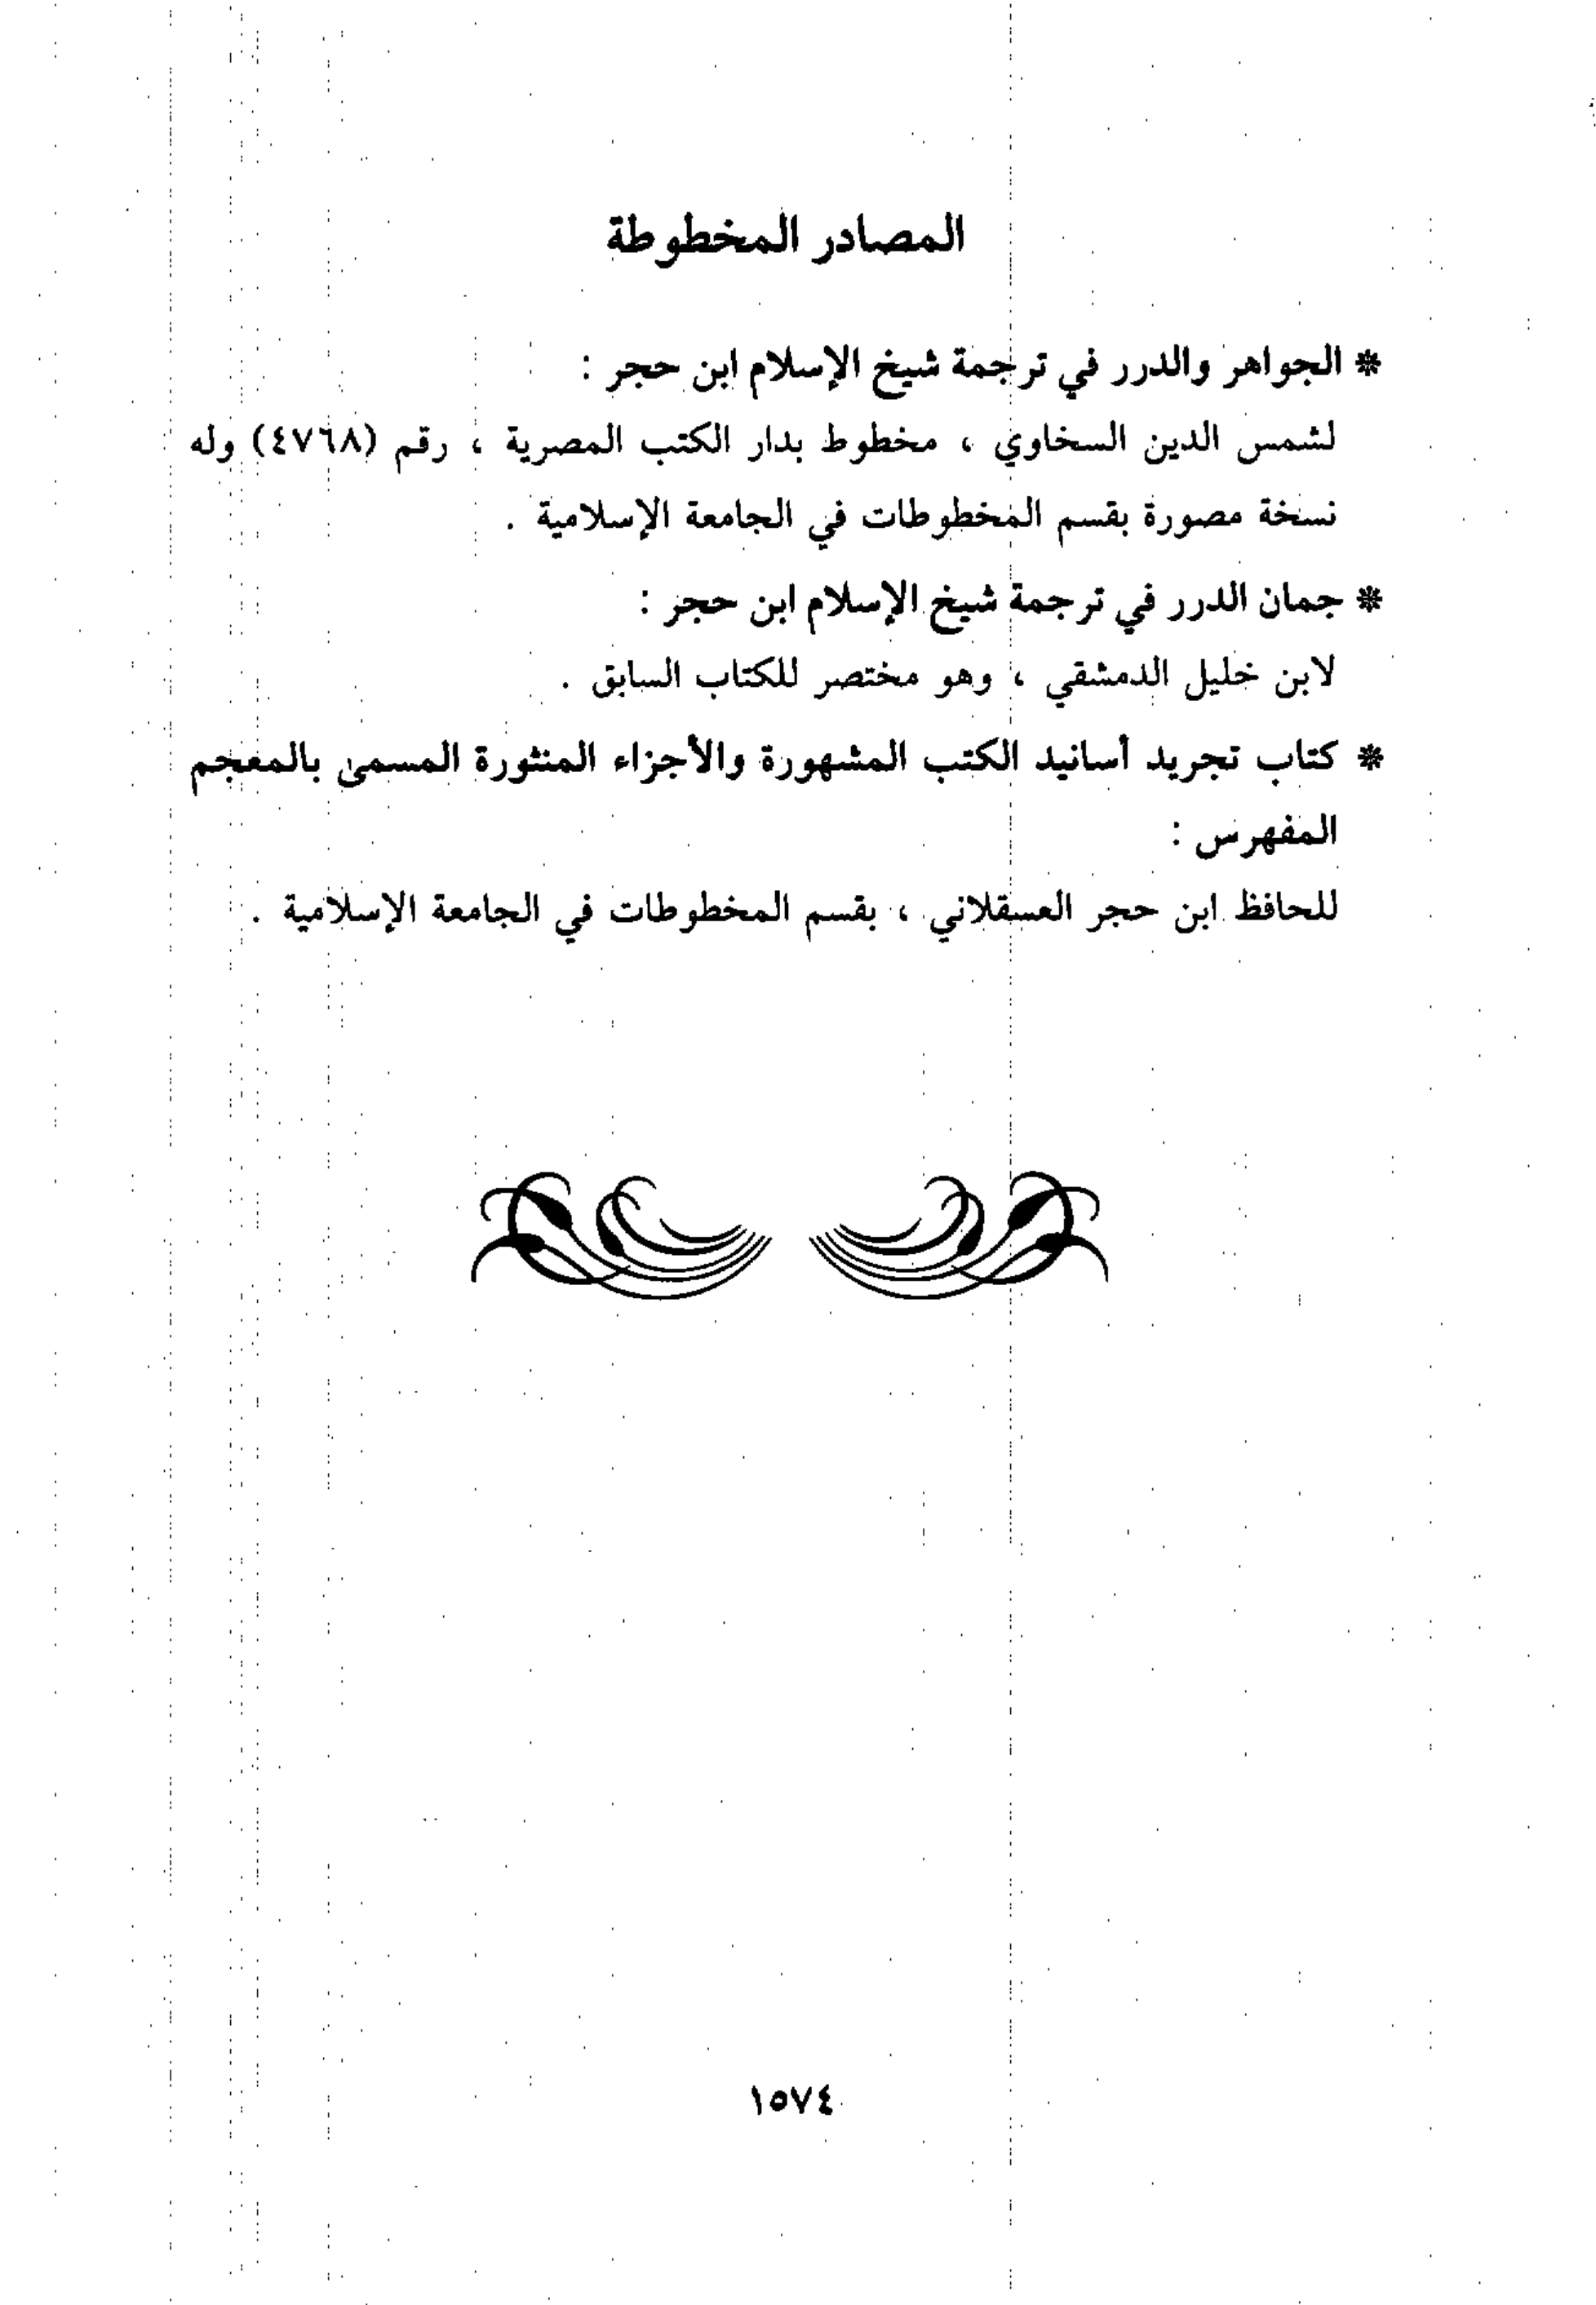 المصادر المخطوطة
* الجواهر والدرر في ترجمة شيخ الإسلام ابن حجر :
لشمس الدين السخاوي ، مخطوط بدار الكتب المصرية ، رقم (٤٧٦٨) وله
نسخة مصورة بقسم المخطوطات في الجامعة الإسلامية .
* جمان الدرر في ترجمة شيخ الإسلام ابن حجر :
لابن خليل الدمشقي ، وهو مختصر للكتاب السابق .
* كتاب تجريد أسانيد الكتب المشهورة والأجزاء المنثورة المسمىٰ بالمعجم
المفهرس :
للحافظ ابن حجر العسقلاني ، بقسم المخطوطات في الجامعة الإسلامية .
١٥٧٤